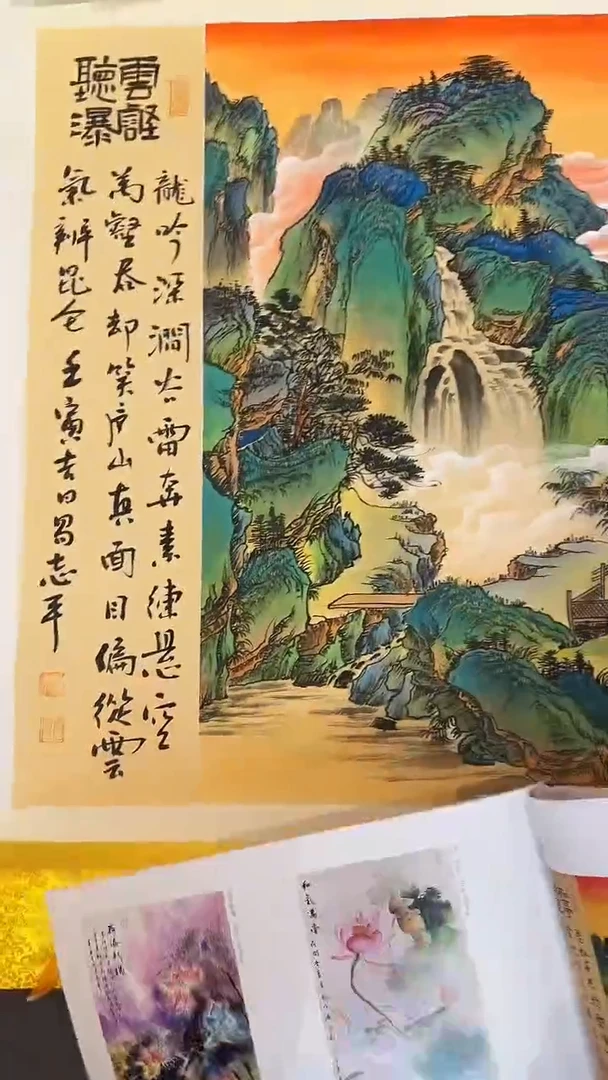 雲壑
聽瀑
龍吟深澗谷雷奔素練悬空
萬壑吞却笑庐山真面目偏從雲
氣辨昆仑 壬寅吉日 志平